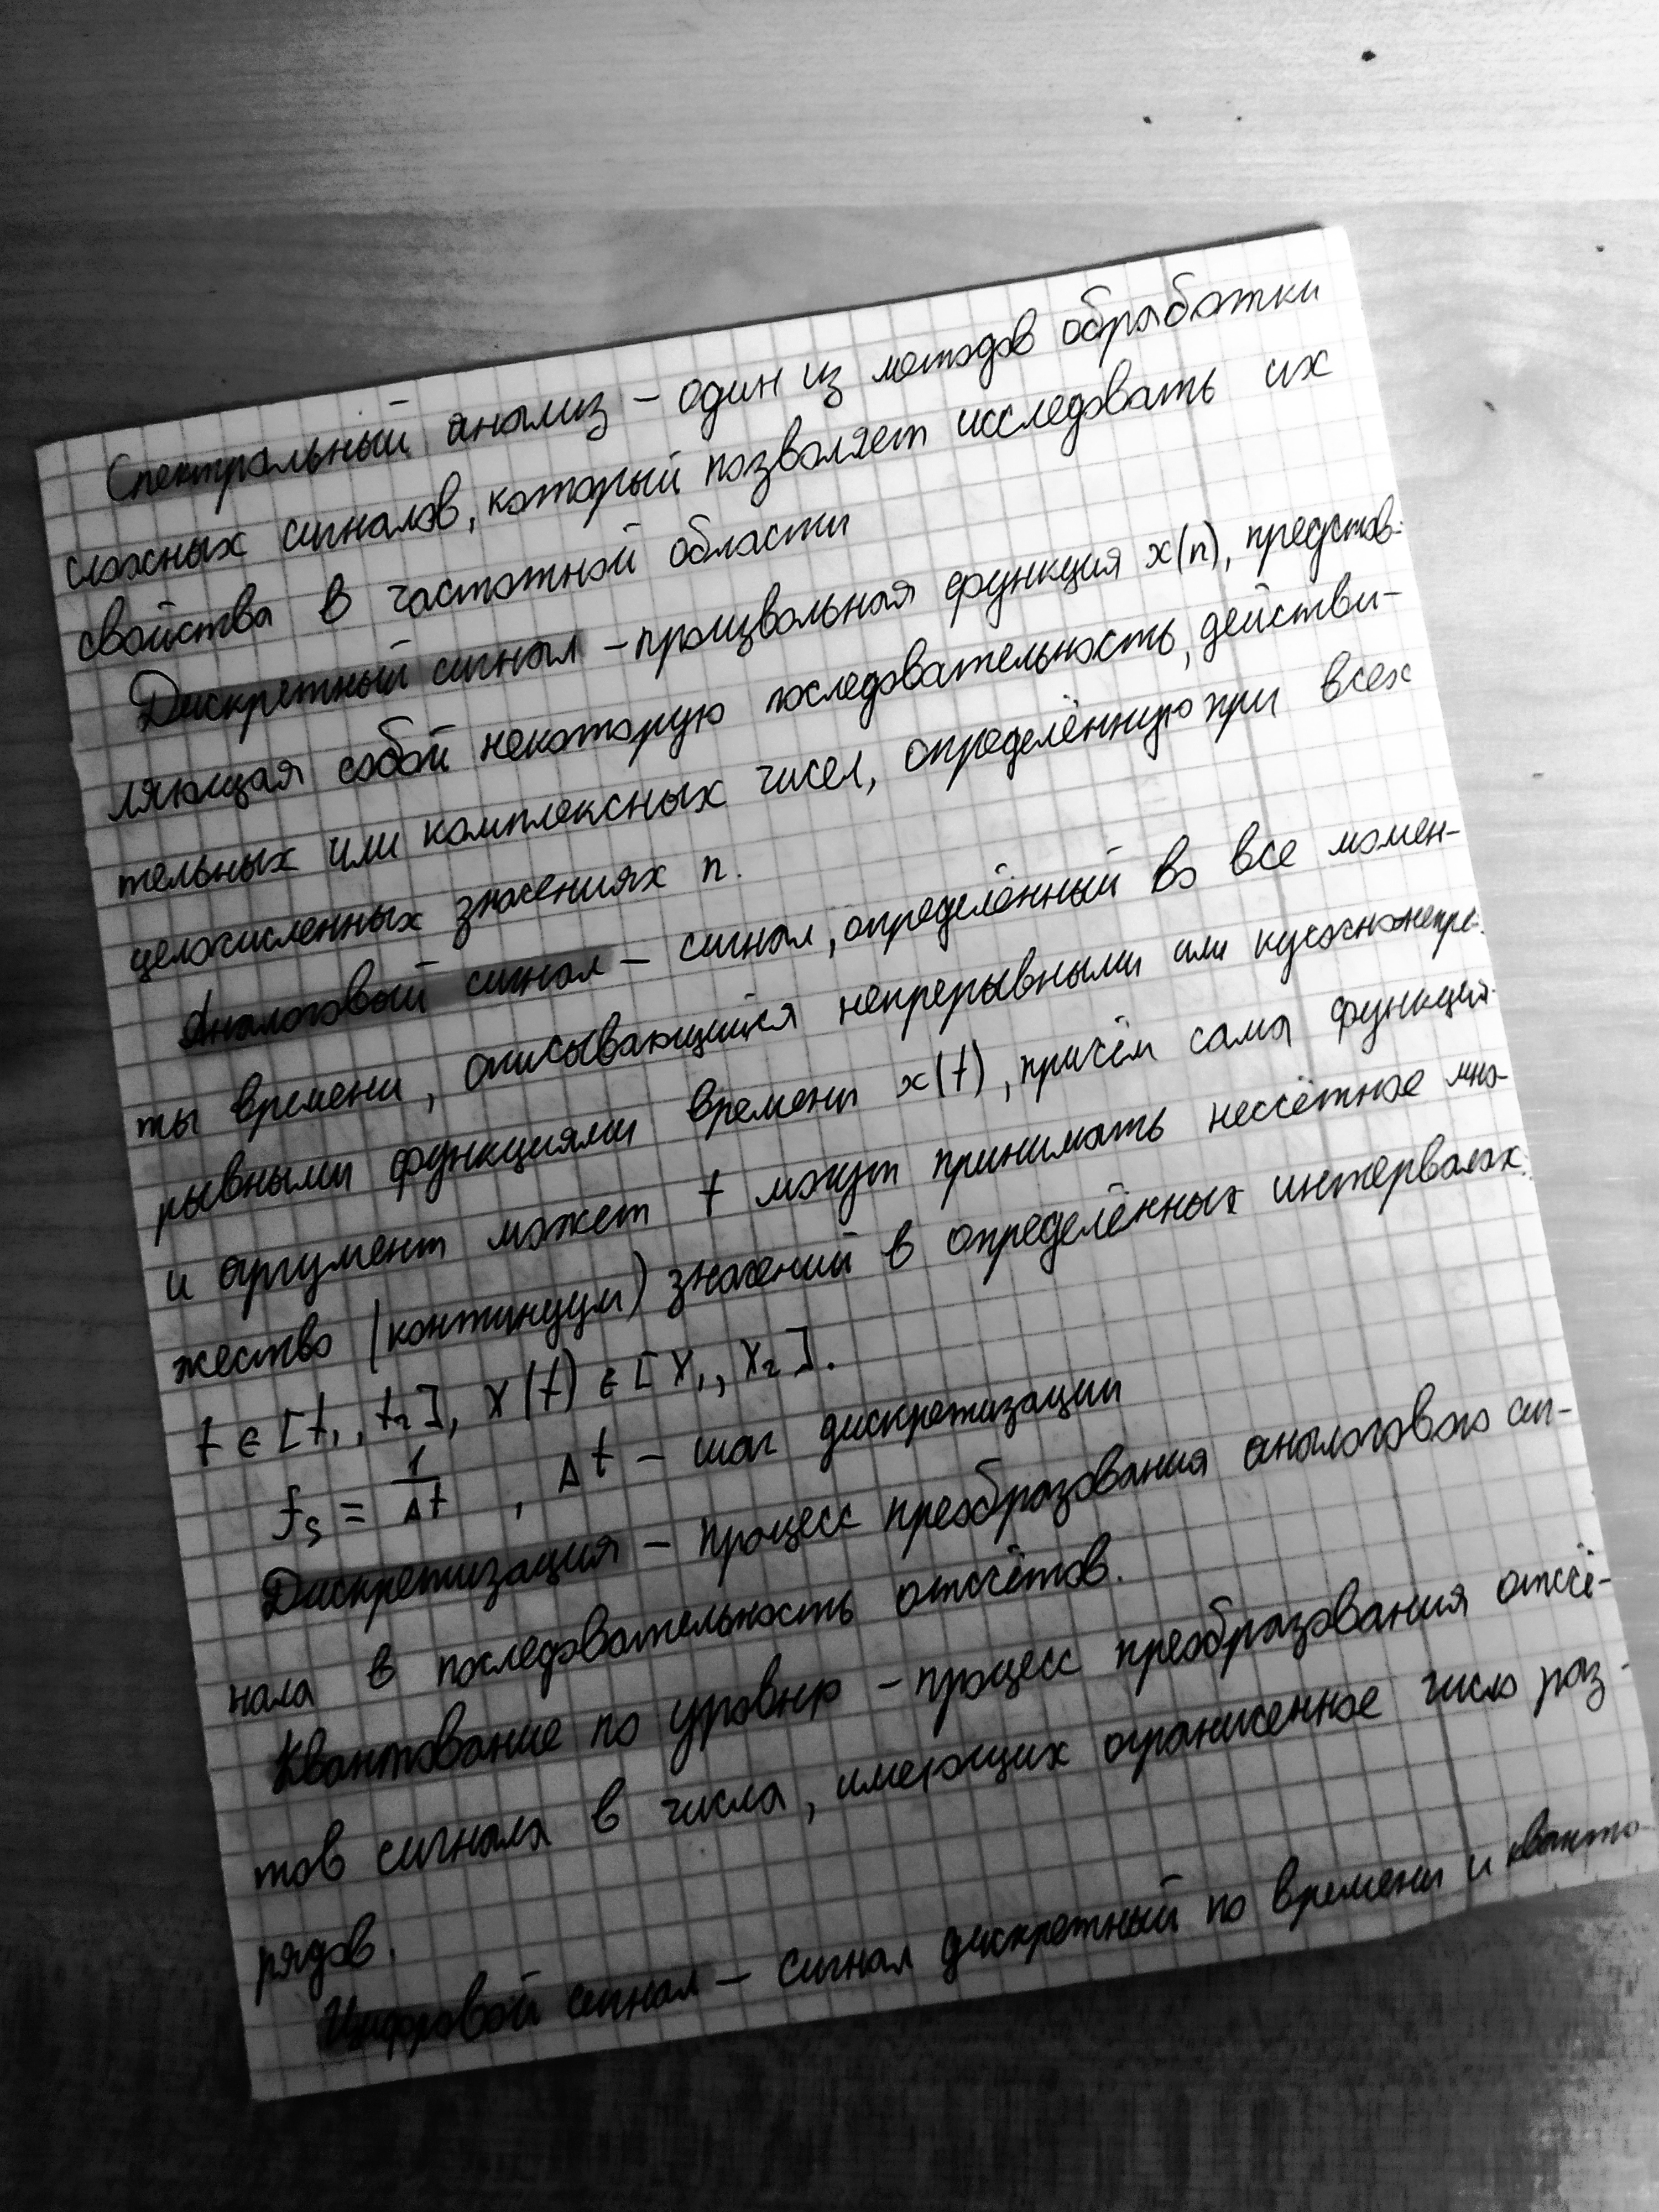 Спектральный анализ – один из методов обработки
сложных сигналов, который позволяет исследовать их
свойства в частотной области
Дискретный сигнал – произвольная функция x(n), представ-
ляющая собой некоторую последовательность, действи-
тельных или комплексных чисел, определённую при всех
целочисленных значениях n.
Аналоговый сигнал – сигнал, определённый во все момен-
ты времени, описывающийся непрерывными или кусочнонепре-
рывными функциями времени x(t), причём сама функция
и аргумент может t могут принимать несчётное мно-
жество (континуум) значений в определённых интервалах:
t ∈ [t₁, t₂], x(t) ∈ [x₁, x₂].
fₛ = 1/Δt , Δt – шаг дискретизации
Дискретизация – процесс преобразования аналогового сиг-
нала в последовательность отсчётов.
Квантование по уровню – процесс преобразования отсчё-
тов сигнала в числа, имеющих ограниченное число раз-
рядов.
Цифровой сигнал – сигнал дискретный по времени и кванто-